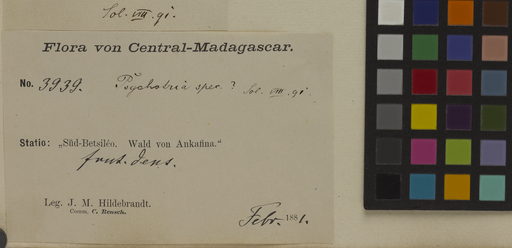 Sol. VIII. 91.
Flora von Central-Madagascar.
No. 3939. Psychotria spec. ? Sol. VIII. 91.
Statio: „Süd-Betsiléo. Wald von Ankafina.“
frut. dens.
Leg. J. M. Hildebrandt.
Comm. C. Rensch.
Febr. 1881.